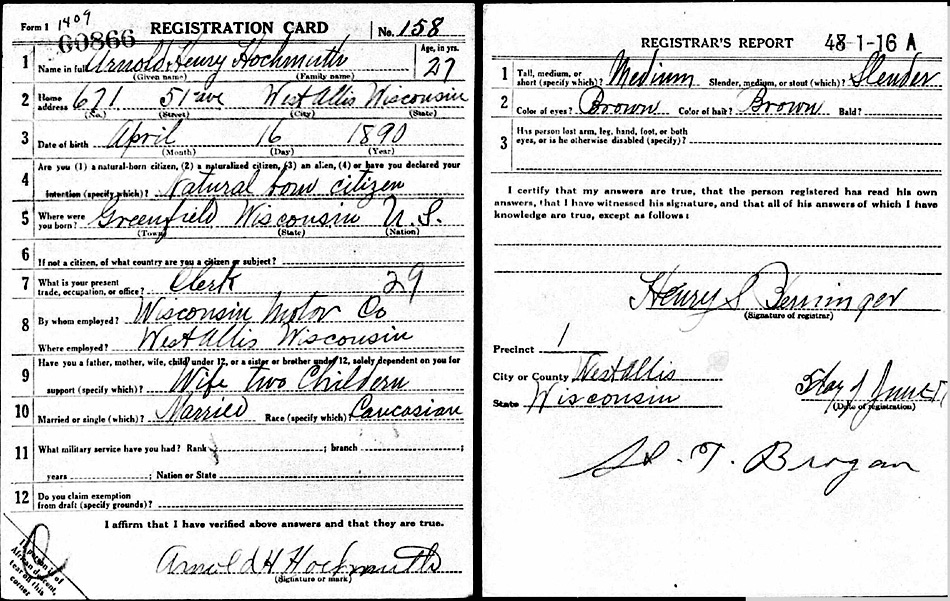 Form 1 1409 REGISTRATION CARD No. 158
60866
1 Name in full Arnold Henry Hochmuth Age, in yrs. 27
(Given name) (Family name)
2 Home address 671 51st ave West Allis Wisconsin
(No.) (Street) (City) (State)
3 Date of birth April 16 1890
(Month) (Day) (Year)
4 Are you (1) a natural-born citizen, (2) a naturalized citizen, (3) an alien, (4) or have you declared your
intention (specify which)? Natural born citizen
5 Where were you born? Greenfield Wisconsin U.S.
(Town) (State) (Nation)
6 If not a citizen, of what country are you a citizen or subject?
7 What is your present trade, occupation, or office? Clerk 29
8 By whom employed? Wisconsin Motor Co
Where employed? West Allis Wisconsin
9 Have you a father, mother, wife, child under 12, or a sister or brother under 12, solely dependent on you for
support (specify which)? Wife two Childern
10 Married or single (which)? Married Race (specify which)? Caucasian
11 What military service have you had? Rank ; branch ;
years ; Nation or State
12 Do you claim exemption from draft (specify grounds)?
I affirm that I have verified above answers and that they are true.
Arnold H Hochmuth
(Signature or mark)
If person is of African descent, tear off this corner
REGISTRAR'S REPORT 48-1-16 A
1 Tall, medium, or short (specify which)? Medium Slender, medium, or stout (which)? Slender
2 Color of eyes? Brown Color of hair? Brown Bald?
3 Has person lost arm, leg, hand, foot, or both
eyes, or is he otherwise disabled (specify)?
I certify that my answers are true, that the person registered has read his own
answers, that I have witnessed his signature, and that all of his answers of which I have
knowledge are true, except as follows:
Henry S Berringer
(Signature of registrar)
Precinct 1
City or County West Allis
State Wisconsin 5 day of June
(Date of registration)
T. Brogan